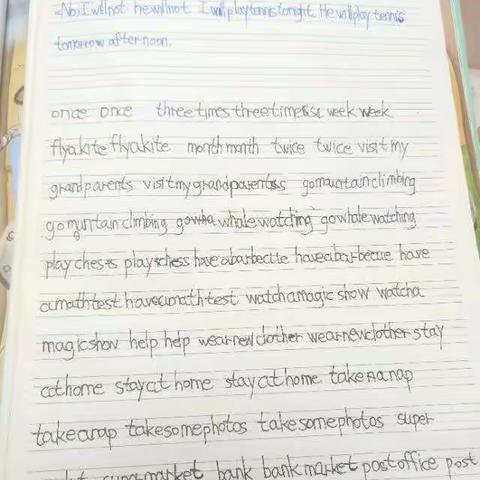 -No, I will not. he will not I will play tennis tonight. He will play tennis
tomorrow afternoon.
once once three times three times week week
fly a kite fly a kite month month twice twice visit my
grandparents visit my grandparents go mountain climbing
go mountain climbing go whale watching go whale watching
play chess play chess have a barbectie have a barbecue have
a math test have a math test watch a magic show watch a
magic show help help wear new clother wear new clother stay
at home stay at home stay at home take a nap
take a nap take some photos take some photos super
market supermarket bank bank market post office post